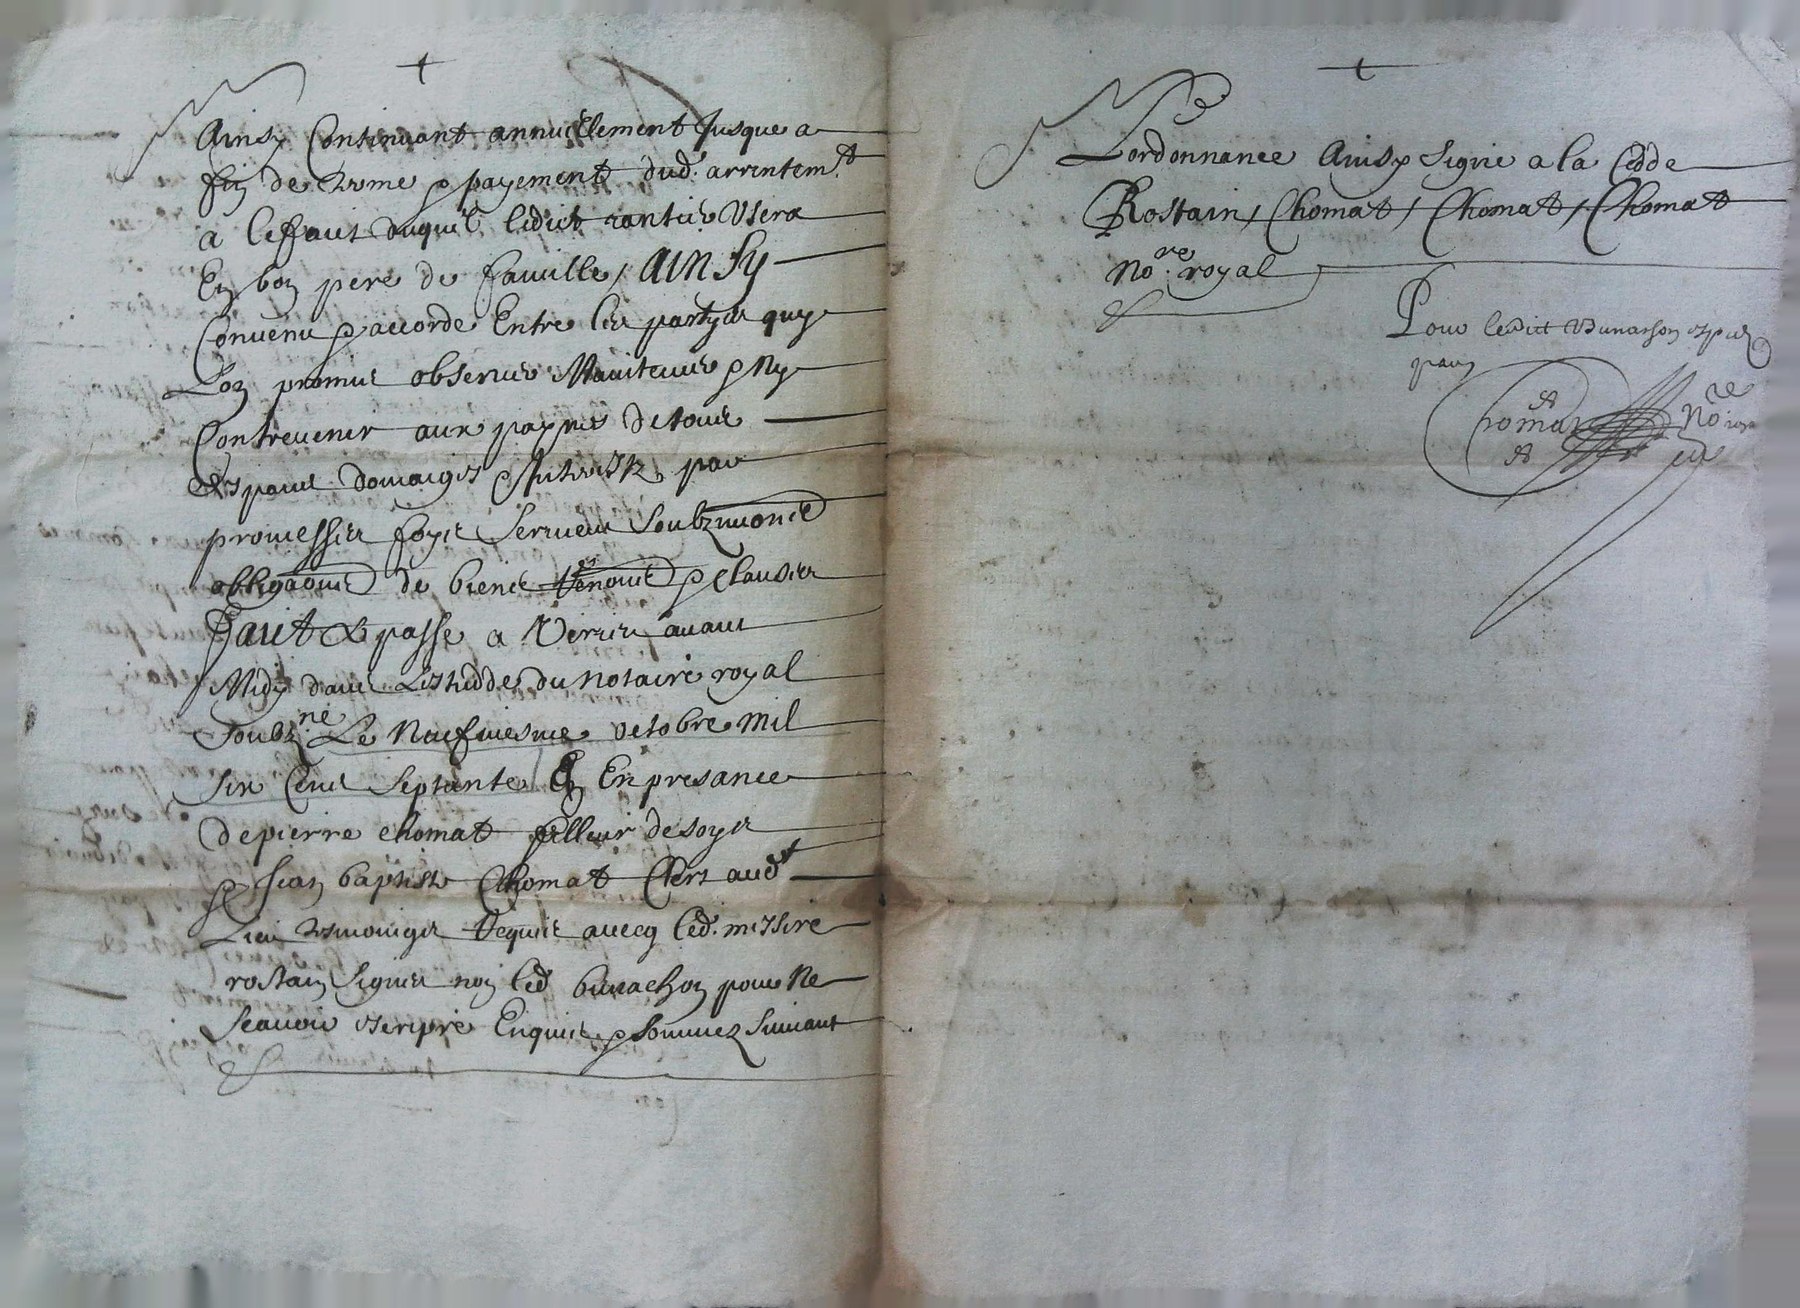 Ainsy Continuant annuellement Jusque a
fin de terme & payement dud. arrentem.t
a leffait duquel ledict rantier Usera
En bon pere de famille / AINSY
Convenu & accorde Entre les partyes quy
Lon promis observer Maintenir & Ny
Contrevenir aux paynes de tous
despans domaiges & Intherestz par
promesses foye Serment Soubzmons
obligaons de biens Renons & Clauses
Fait & passe a avant
Midy dans Lesthudde du Notaire royal
Soubz.né Le Neufviesme octobre Mil
Six Cens Septante En presance
de pierre chomat filleur de soyes
& Jean baptiste Chomat Clerz aud.t
Lieu tesmoinges Requis avecq led. messire
rostain Signes non led bunachon pour Ne
Scavoir escripre Enquis & Sommez Suivant
Lordonnance Ainsy Signe a la Cedde
Rostain / Chomat / Chomat / Chomat
No.re royal
Pour ledict Bunachon
Chomat No.re